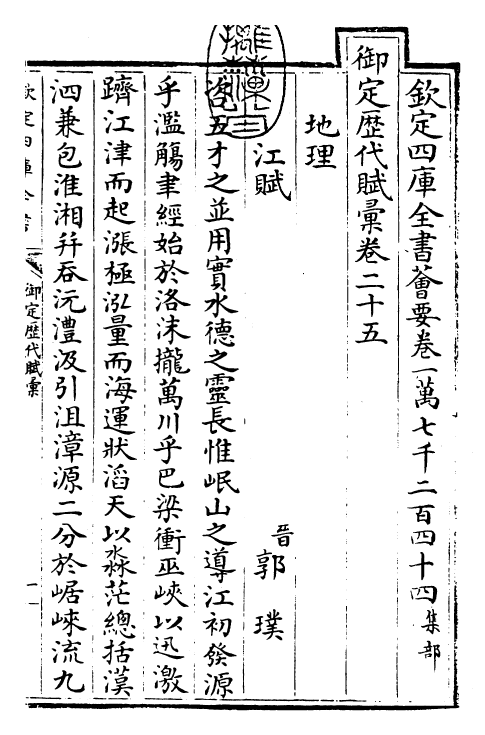 欽定四庫全書薈要卷一萬七千二百四十四集部
御定歷代賦彙卷二十五
地理
江賦
晉郭璞
咨五才之並用實水德之靈長惟岷山之導江初發源
乎濫觴聿經始於洛沬攏萬川乎巴梁衝巫峽以迅激
躋江津而起漲極泓量而海運狀滔天以淼茫總括漢
泗兼包淮湘幷吞沅澧汲引沮漳源二分於崌崍流九
御定歷代賦彙